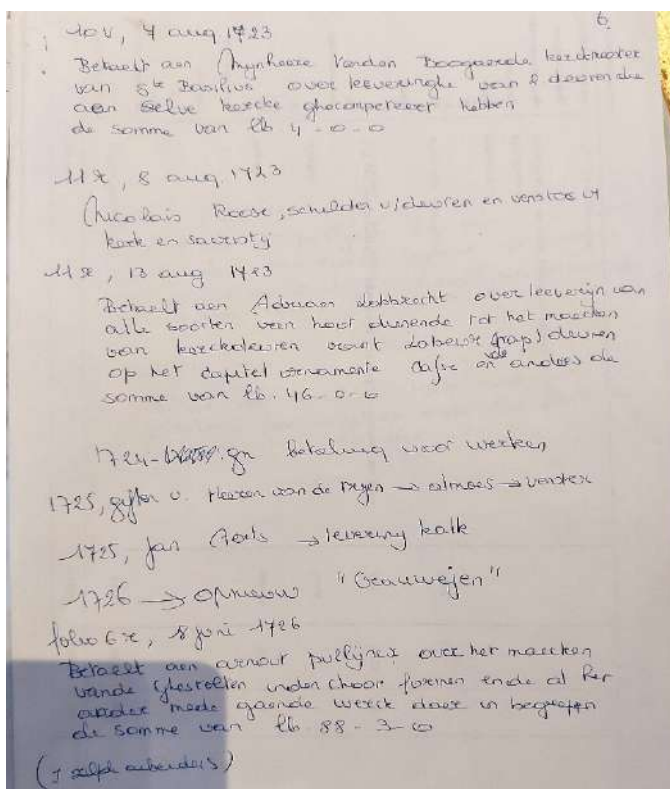 6
10v, 7 aug 1723
Betaelt aen Mynheere Vanden Boogaerde kerckmeester
van Ste Basilius over leeveringhe van 2 deuren die
aen selve kercke ghecompeteert hebben
de somme van lb 4-0-0
11r, 8 aug 1723
Nicolais Roese, schilder v/deuren en vensters vt
kerk en sacristij
11r, 13 aug 1723
Betaelt aen Adriaen Lobbrecht over leeverijn van
alle soorten van hout dienende tot het maecken
van kerckdeuren vant Labeur trap/deuren
op het capitel ornamente en ande
somme van lb. 46-0-0
1724- betaling voor werken
1725, giften v. Heeren van de → almoes → venster
1725, Jan → levering kalk
1726 → opnieuw "Grauwejen"
folio 6r, 8 juni 1726
Betaelt aen arnout pullijnx over het maecken
vande ghestelten inden choor formen ende al het
ander mede gaende werck daer in begrepen
de somme van lb. 88-3-0